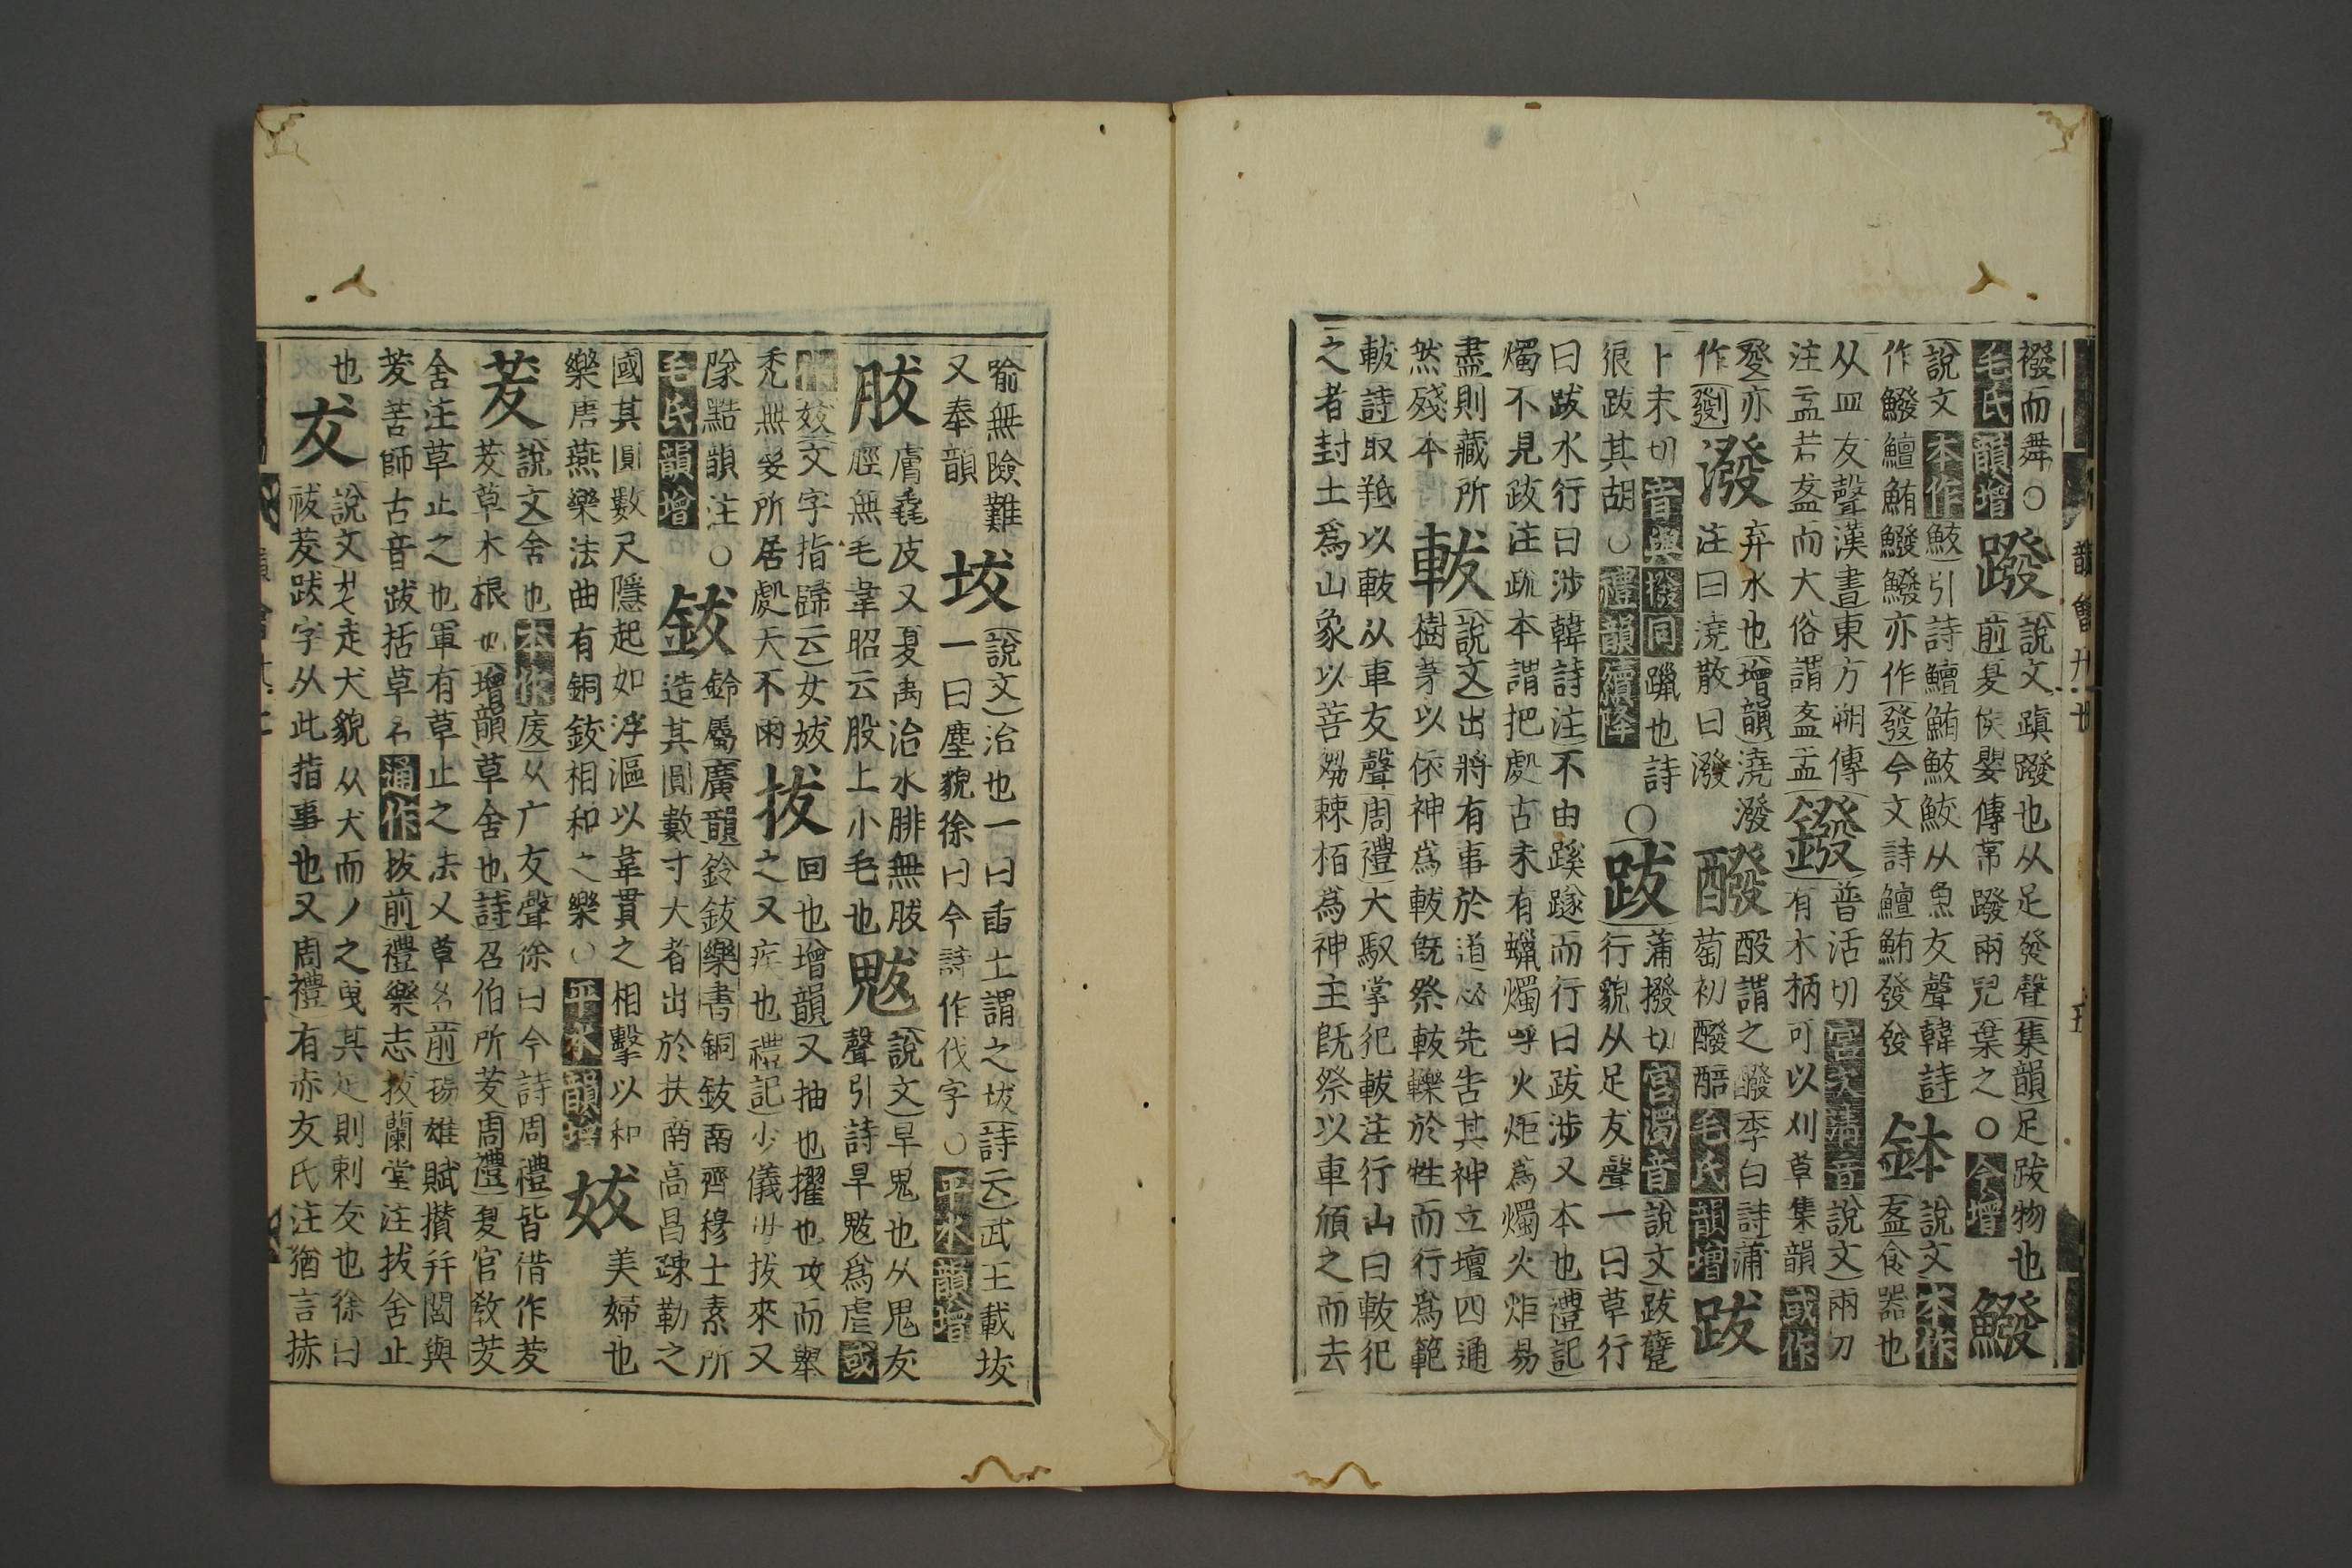 撥而舞○
毛氏韻增
蹳
說文蹎蹳也从足發聲集韻足跋物也
前夏侯嬰傳常蹳兩兒棄之○今增
鱍
說文本作鮁引詩鱣鮪鮁鮁从魚犮聲韓詩
作鱍鱣鮪鱍鱍亦作發今文詩鱣鮪發發
鉢
說文本作
盋食器也
从皿犮聲漢書東方朔傳
注盂若盋而大俗謂盋盂
鏺
普活切宮次清音說文兩刃
有木柄可以刈草集韻或作
癹亦
作
潑
弃水也增韻澆潑
注曰澆散曰潑
醱
酘謂之醱李白詩蒲
萄初醱醅毛氏韻增
跋
卜末切音與撥同躐也詩
狼跋其胡○禮韻續降
○跋
蒲撥切宮濁音說文跋躠
行貌从足犮聲一曰草行
曰跋水行曰涉韓詩注不由蹊遂而行曰跋涉又本也禮記
燭不見跋注疏本謂把處古未有蠟燭呼火炬爲燭火炬易
盡則藏所
然殘本
軷
說文出將有事於道必先告其神立壇四通
樹茅以依神爲軷旣祭軷轢於牲而行爲範
軷詩取羝以軷从車犮聲周禮大馭掌犯軷注行山曰軷犯
之者封土爲山象以菩芻棘栢爲神主旣祭以車㢧之而去
喻無險難
又奉韻
坺
說文治也一曰臿土謂之坺詩云武王載坺
一曰塵貌徐曰今詩作伐字○平水韻增
胈
膚毳皮又夏禹治水腓無胈
脛無毛韋昭云股上小毛也
鬾
說文旱鬼也从鬼犮
聲引詩旱鬾爲虐或
作妭文字指歸云女妭
禿無髮所居處天不雨
拔
回也增韻又抽也擢也攻而舉
之又疾也禮記少儀毋拔來又
隊黠韻注○
毛氏韻增
鈸
鈴屬廣韻鈴鈸樂書銅鈸南齊穆士素所
造其圓數寸大者出於扶南高昌疎勒之
國其圓數尺隱起如浮漚以韋貫之相擊以和
樂唐燕樂法曲有銅鈸相和之樂○平水韻增
妭
美婦也
茇
說文舍也本作废从广犮聲徐曰今詩周禮皆借作茇
茇草木根也增韻草舍也詩召伯所茇周禮夏官敎茇
舍注草止之也軍有草止之法又草名前揚雄賦攢幷閭與
茇苦師古音跋括草名通作拔前禮樂志拔蘭堂注拔舍止
也
犮
說文走犬貌从犬而丿之曳其足則剌犮也徐曰
祓茇跋字从此指事也又周禮有赤犮氏注猶言捇